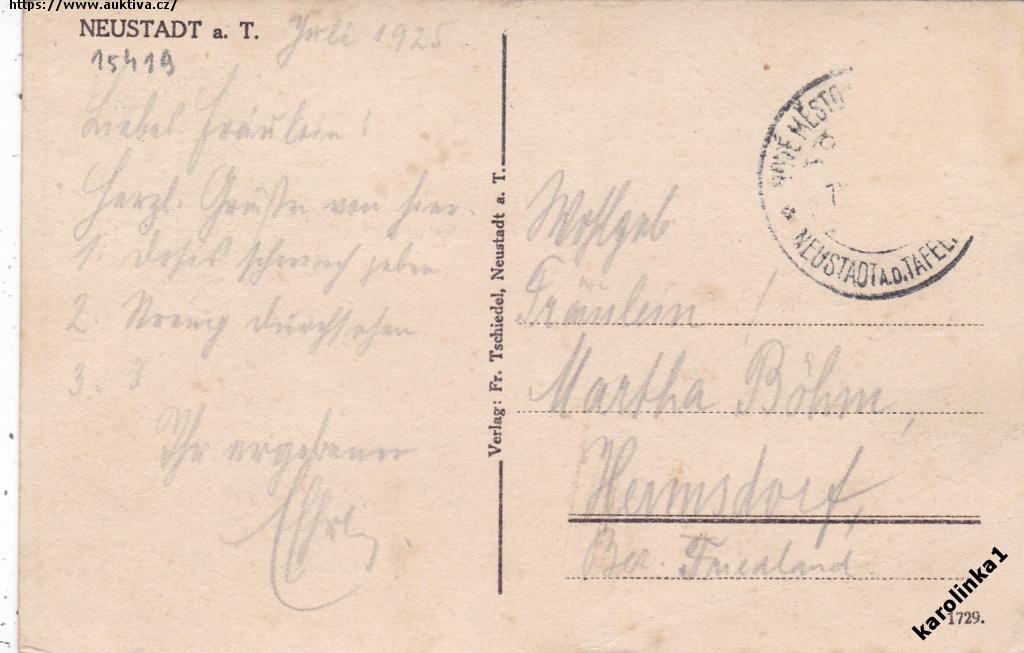 https://www.auktiva.cz/
NEUSTADT a. T.
Juli 1925
15419
Liebes Fräulein!
Herzl. Grüße von hier.
1 doses schwach geben
2. Streng durchsehen
3. 8
Ihr ergebener
Verlag: Fr. Tschiedel, Neustadt a. T.
NOVÉ MĚSTO
* NEUSTADT A.D.TAFEL
Wohlgeb
Fräulein!
Martha Böhm,
Hermsdorf,
Bez. Friedland.
1729.
karolinka1